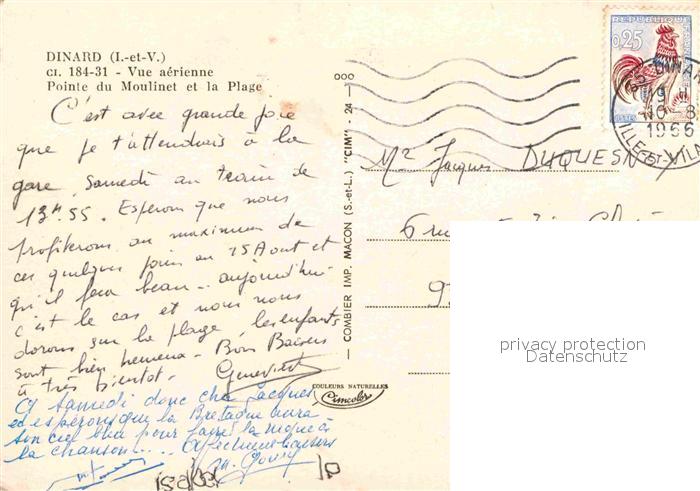 DINARD (I.-et-V.)
CI. 184-31 - Vue aérienne
Pointe du Moulinet et la Plage
C'est avec grande joie
que je t'attendrais à la
gare, Samedi au train de
13H55. Esperons que nous
profiterons au maximum de
ces quelques jours au 15 Aout et
qu'il fera beau... aujourd'hui
c'est le cas et nous nous
dorons sur la plage, les enfants
sont bien heureux - Bons Baisers
à très bientot.
A Samedi donc cher Jacques
et espérons que la Bretagne aura
son ciel bleu pour faire la nique à
la chanson....
isabel
COMBIER IMP. MACON (S.-et-L.) "CIM" - 24 -
COULEURS NATURELLES
Cimcolor
REPUBLIQUE
0,25
POSTES
1966
Mr Jacques DUQUESNOY
6 rue
privacy protection
Datenschutz